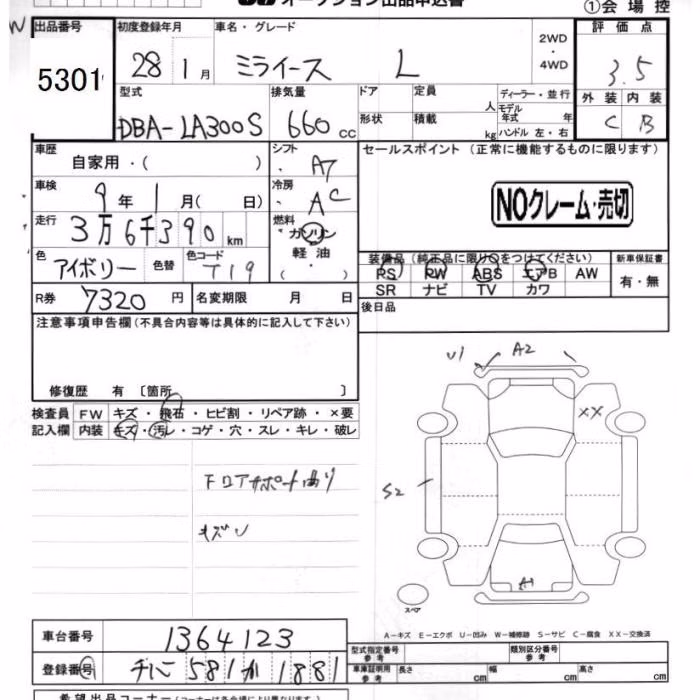 オークション出品申込書 ①会場控
出品番号 初度登録年月 車名・グレード 2WD・4WD 評価点
5301 28 1月 ミライース L 3.5
型式 排気量 ドア 定員 人 ディーラー・並行 外装 内装
DBA-LA300S 660 cc 形状 積載 kg モデル年式 年 ハンドル 左・右 C B
車歴 自家用・( ) シフト AT セールスポイント (正常に機能するものに限ります)
車検 9年 1月( 日) 冷房 AC NOクレーム・売切
走行 3万6千390km 燃料 ガソリン・軽油・( )
色 アイボリー 色替 色コード T19 装備品 (純正品に限り○をつけてください) 新車保証書
PS PW ABS エアB AW 有・無
SR ナビ TV カワ
R券 7320円 名変期限 月 日 後日品
注意事項申告欄(不具合内容等は具体的に記入して下さい)
修復歴 有 〔箇所 〕
検査員 FW キズ・飛石・ヒビ割・リペア跡・×要
記入欄 内装 キズ・汚レ・コゲ・穴・スレ・キレ・破レ
U1 A2
XX
S2
キズ
A1
スペア
A-キズ E-エクボ U-凹み W-補修跡 S-サビ C-腐食 XX-交換済
車台番号 1364123
登録番号 581 か 1881
型式指定番号 参考 類別区分番号 参考
車庫証明用 参考 長さ cm 幅 cm 高さ cm
希望出品コーナー